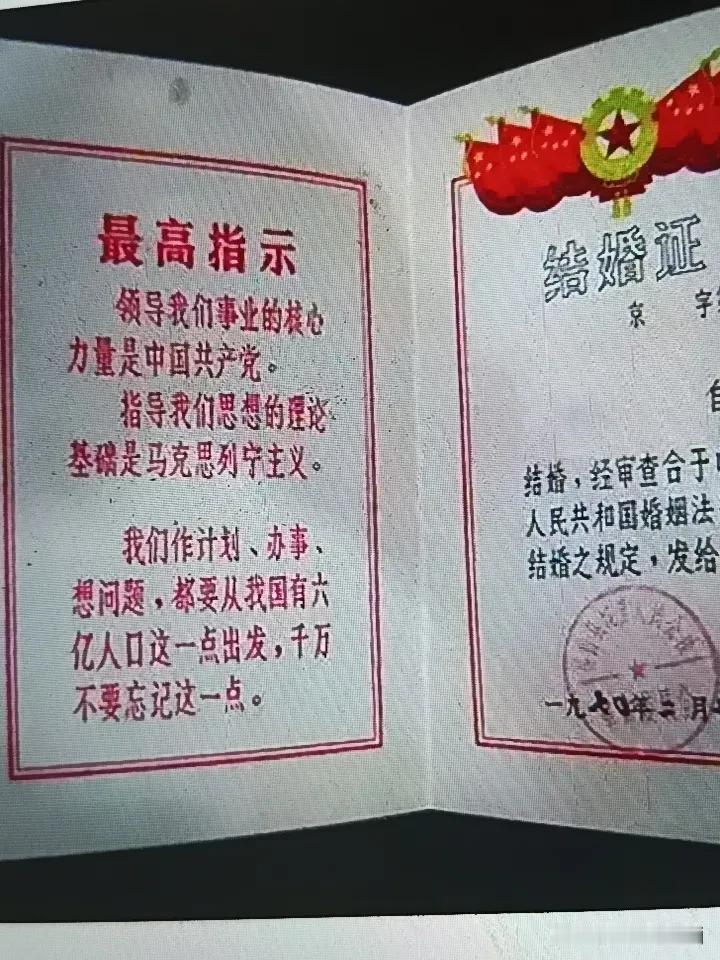 最高指示
领导我们事业的核心
力量是中国共产党。
指导我们思想的理论
基础是马克思列宁主义。
我们作计划、办事、
想问题，都要从我国有六
亿人口这一点出发，千万
不要忘记这一点。
结婚证
京 字
结婚，经审查合于
人民共和国婚姻法
结婚之规定，发给
一九七〇年三月